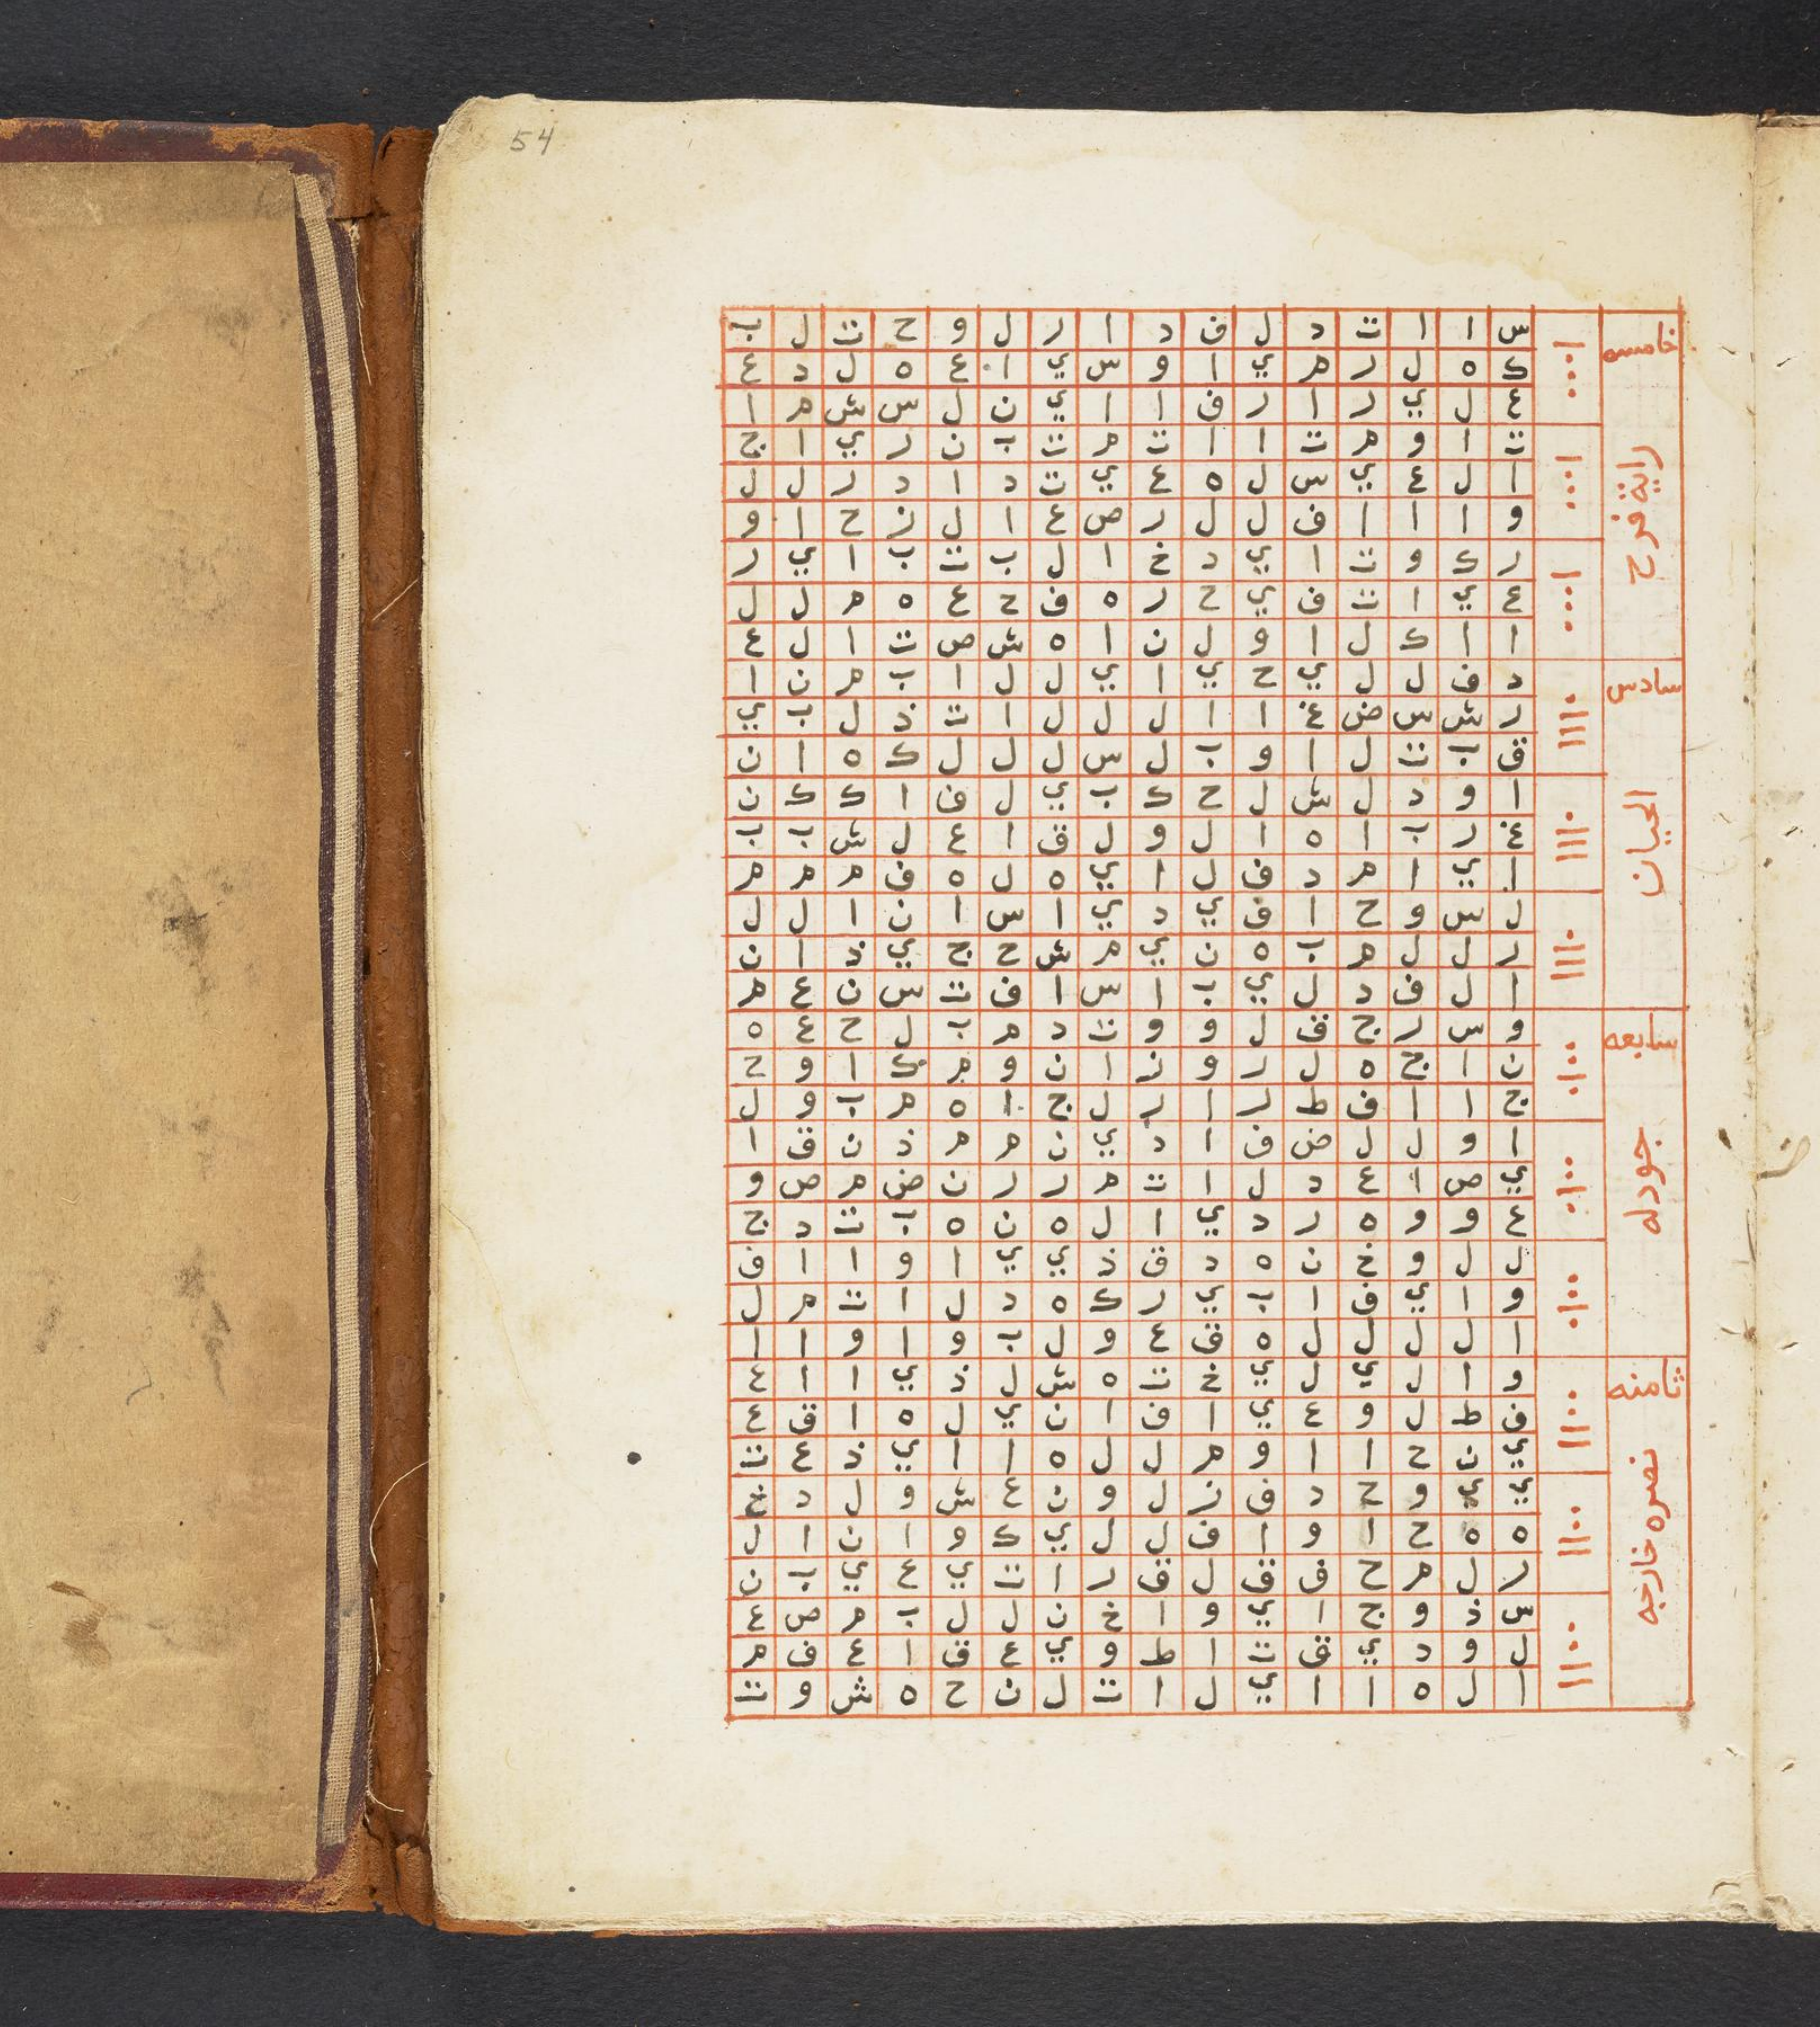 54
خامسه
راية فرح
سادس
الحيان
سابعه
جودله
ثامنه
نصره خارجه
س ا ا ت د ل ف د ا ر ل و ح ت ل ب
ك ه ل ر م ي ا و س ي ا ع ه ل د ع
ع ل ي ر ا ر ف ا ا ي ن ل س ش م ا
ت ا و م ت ا ا ت م ت ب ن ر ي ا ج
ا ل ع ي س ل ه ع ي ت د ا د ر ل ل
و ا ا ا ف ل ل ر ص ع ا ل ز ح ا و
ر ك و ت ا ي د خ ا ل ب ت ب ا ي ر
ع ي ا ت ف ي ح ر ه ف ح ع ه م ل ل
ا ا ك ل ا و ل ن ا ه ش ص ت ا ل ع
د ف ل ل ي ح ي ا ي ل ل ا ب م ن ا
ر ش س ض غ ا ا ل ل ل ا ت ذ ل ب ي
ق ب ت ل ا و ب ل س ل ل ل ك ه ا ن
ا و د ل ش ل ح ك ب ي ل ف ا ك ك ن
غ ر ب ا ه ا ل و ل ق ا ع ل ش ب ب
ا ي ا م د ف ل ا ي ه ل ه ف م م م
ل س و ح ا ف ي د ي ا س ا ن ا ل ل
ر ل ل م ب ه ن ي م ش ح ج ي ذ ا ن
ا ل ف د ل ي ب ا س ا ف ت س ن ع م
و س ر ج ق ل و و ت د م ب ل ح ع ه
ن ا ج ه ل ر و ز ا ن و م ك ا و ح
ج ا ا ف ط ر ا ر ل ج ا ه م ب و ل
ا و ل ل ض ف ا د ي ن م م ذ ن ق ا
ي ص ا ع د ل ا ت م ر ر ن ض م ص و
ع و و ه ر د ي ا ل ه ن ه ب ت د ج
ل ل و خ ن ه د ق ذ ي ي ا و ا ا ف
و ا ي ف ا ب ي ر ك ه د ل ا ت م ل
ا ل ل ل ل ه ق ع و ل ب و ا و ا ا
و ا ل ي ل ي خ ت ه ش ل ذ ي ا ا ع
ف ط ل و ع ي ا ف ا ن ي ل ه ا ق ع
ي ن ح ا ا و م ل ل ه ا ا ي ذ ع ت
ي ي و ح د ف ز ل و ن ع ش و ل د
ه ه ح ا و ا ف ل ل ي ك و ا ن ا ل
ر ل م ح ف ق ل ق ر ا ت ي ع ي ب ن
س ذ و ج ا ي و ا خ ن ل ل ب م ص ع
ل و د ي ق ت ا ط و ي ع ق ا ع ف م
ا ل ه ا ا ي ل ا ت ل ن ح ه ش و ت